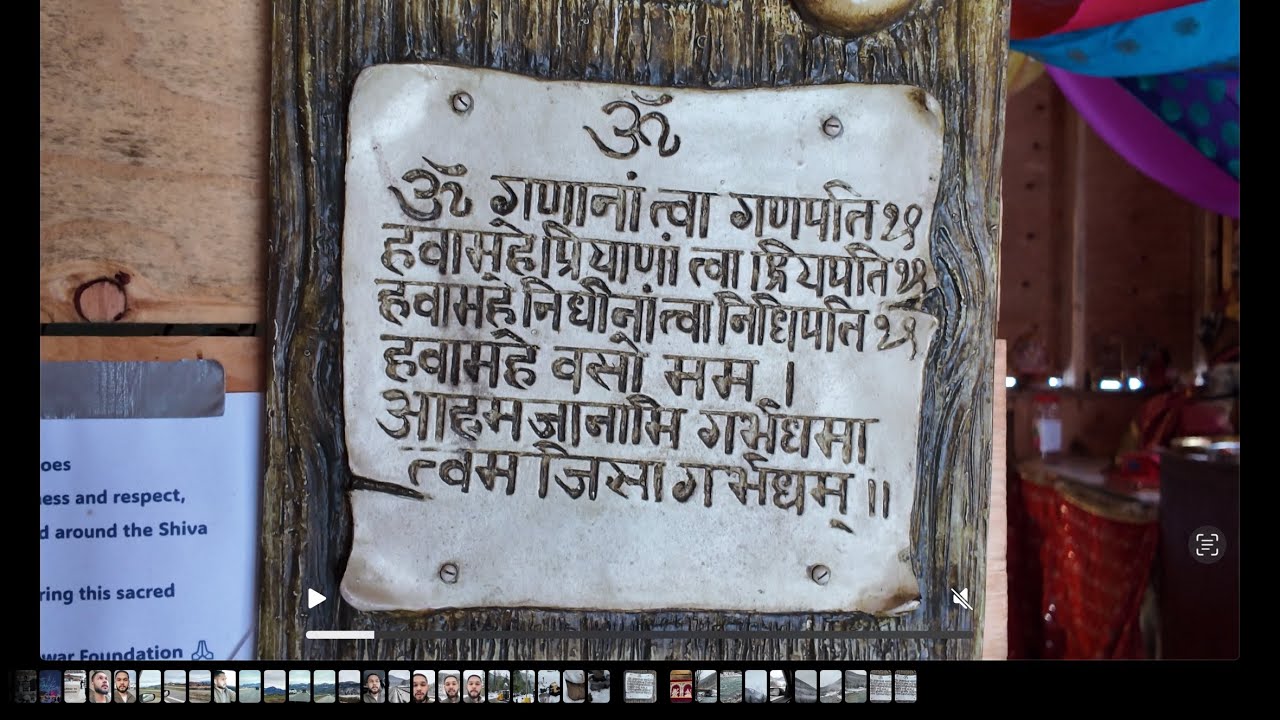 ॐ
ॐ गणानां त्वा गणपति
हवामहे प्रियाणां त्वा प्रियपति
हवामहे निधीनां त्वा निधिपति
हवामहे वसो मम ।
आहम जानामि गर्भधमा
त्वम जिसा गर्भधम् ॥
oes
ess and respect,
d around the Shiva
ring this sacred
war Foundation